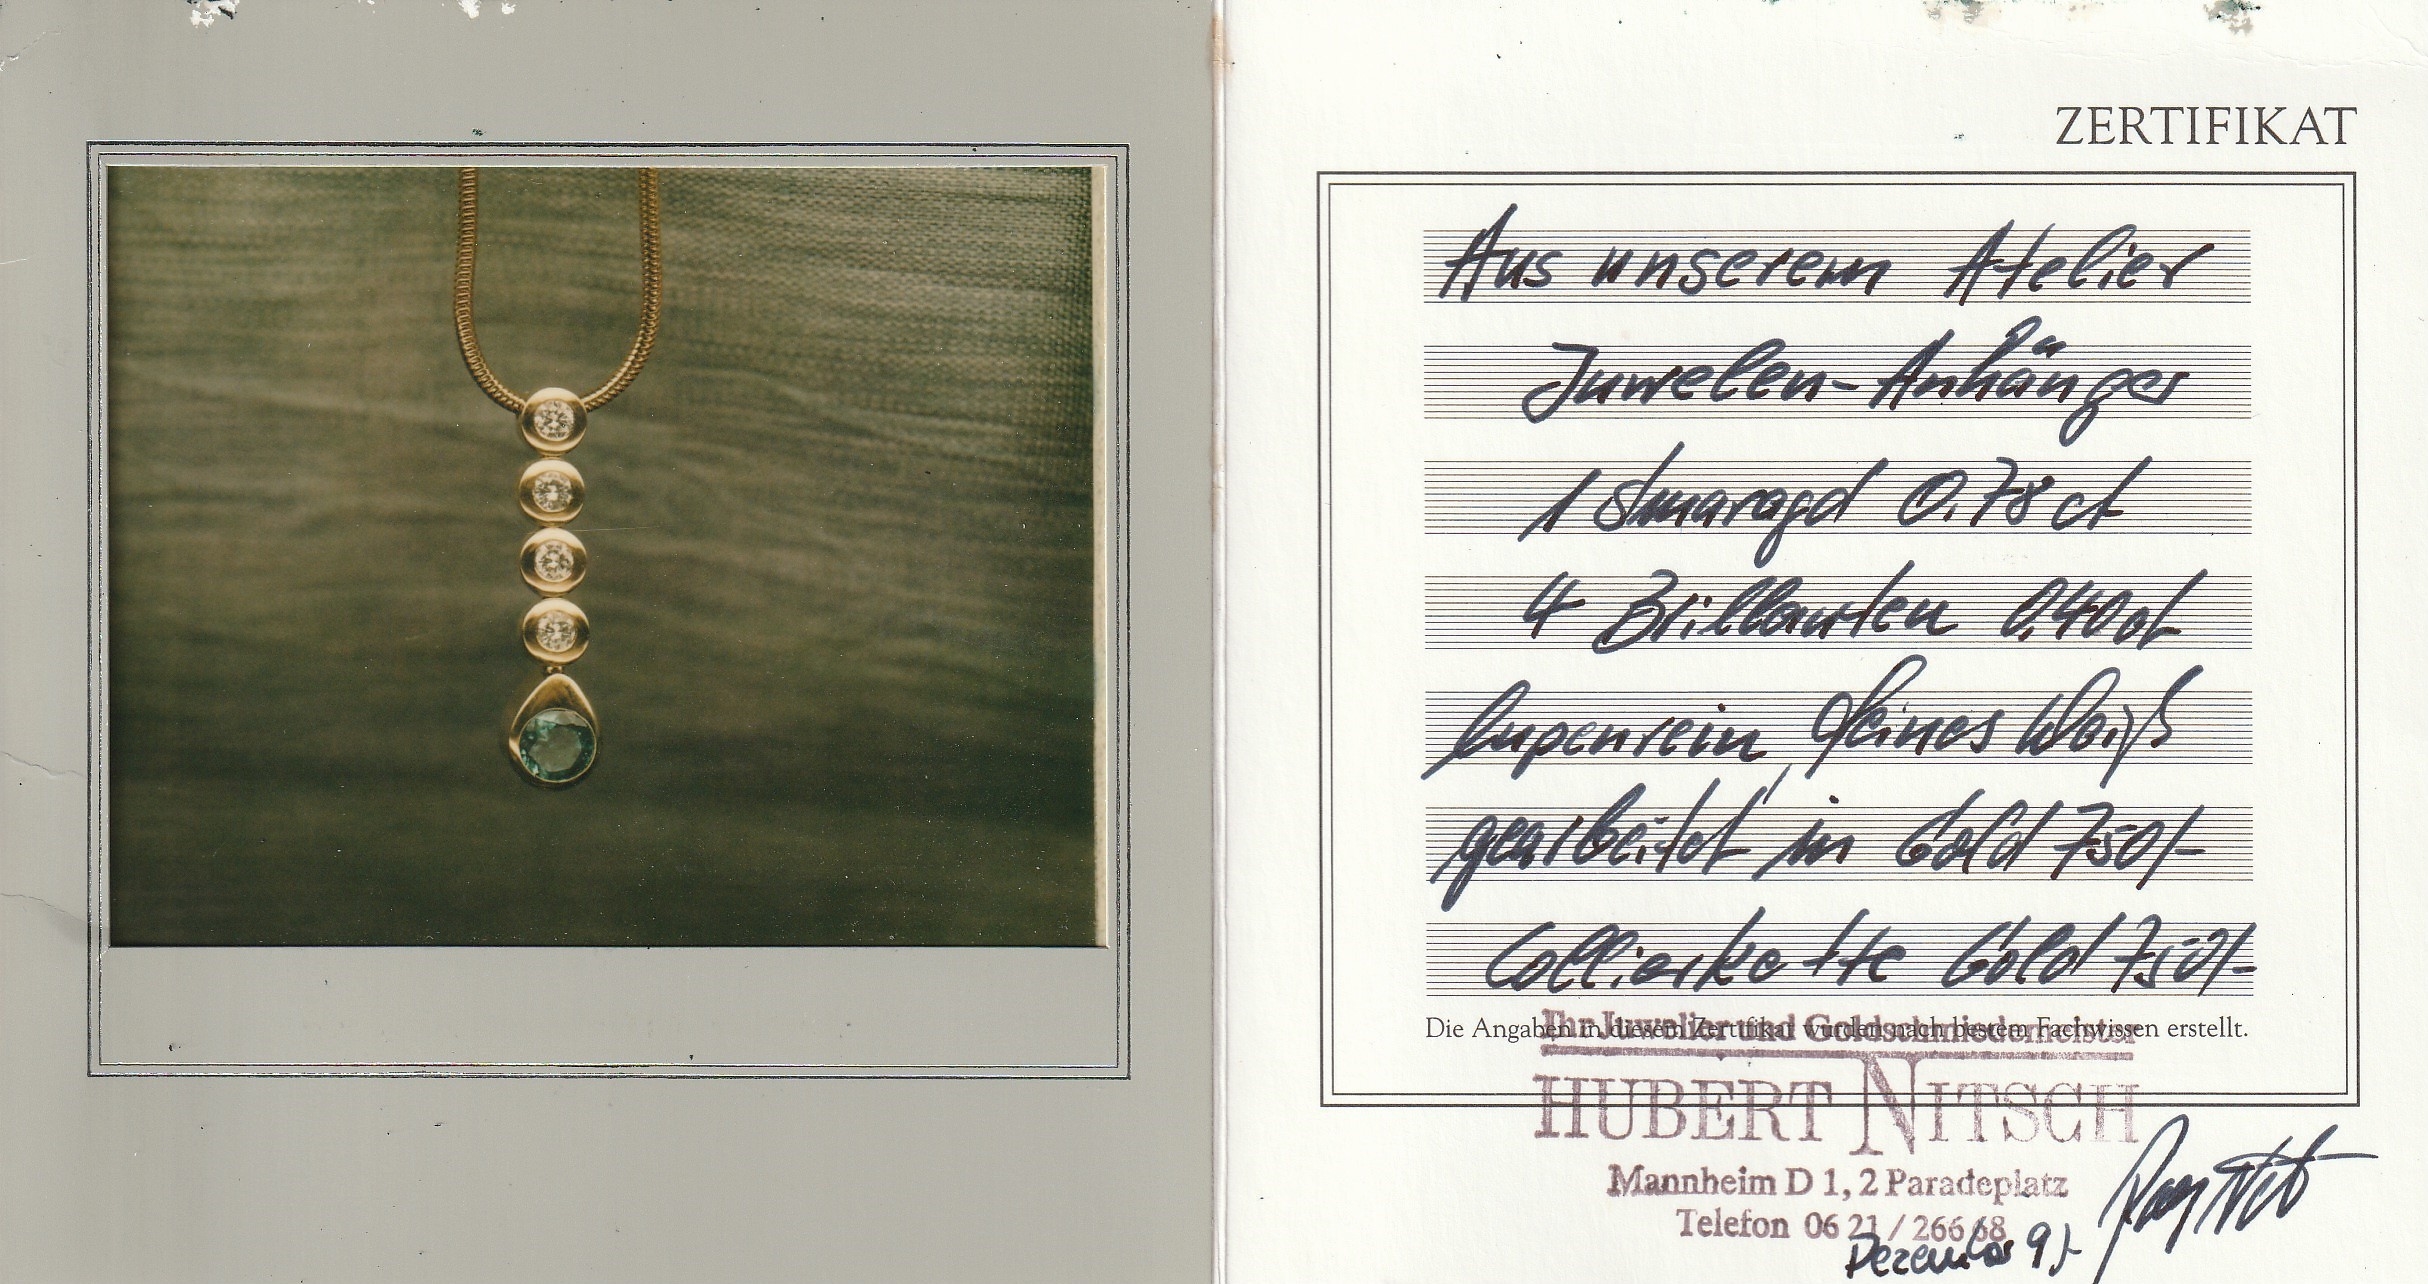 ZERTIFIKAT
Aus unserem Atelier
Juwelen-Anhänger
1 Smaragd 0.78 ct
4 Brillanten 0,40 ct
lupenrein feines Weiß
gearbeitet in Gold 750/-
Collierkette Gold 750/-
Die Angaben in diesem Zertifikat wurden nach bestem Fachwissen erstellt.
Ihr Juwelier und Goldschmiedemeister
HUBERT NITSCH
Mannheim D 1, 2 Paradeplatz
Telefon 06 21 / 266 68
Dezember